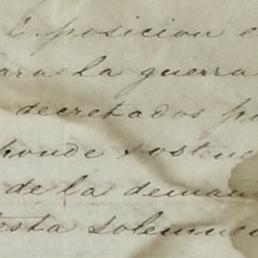 Esposicion e
para la guerra
decretados po
ponde sostene
de la deman
esta solemne